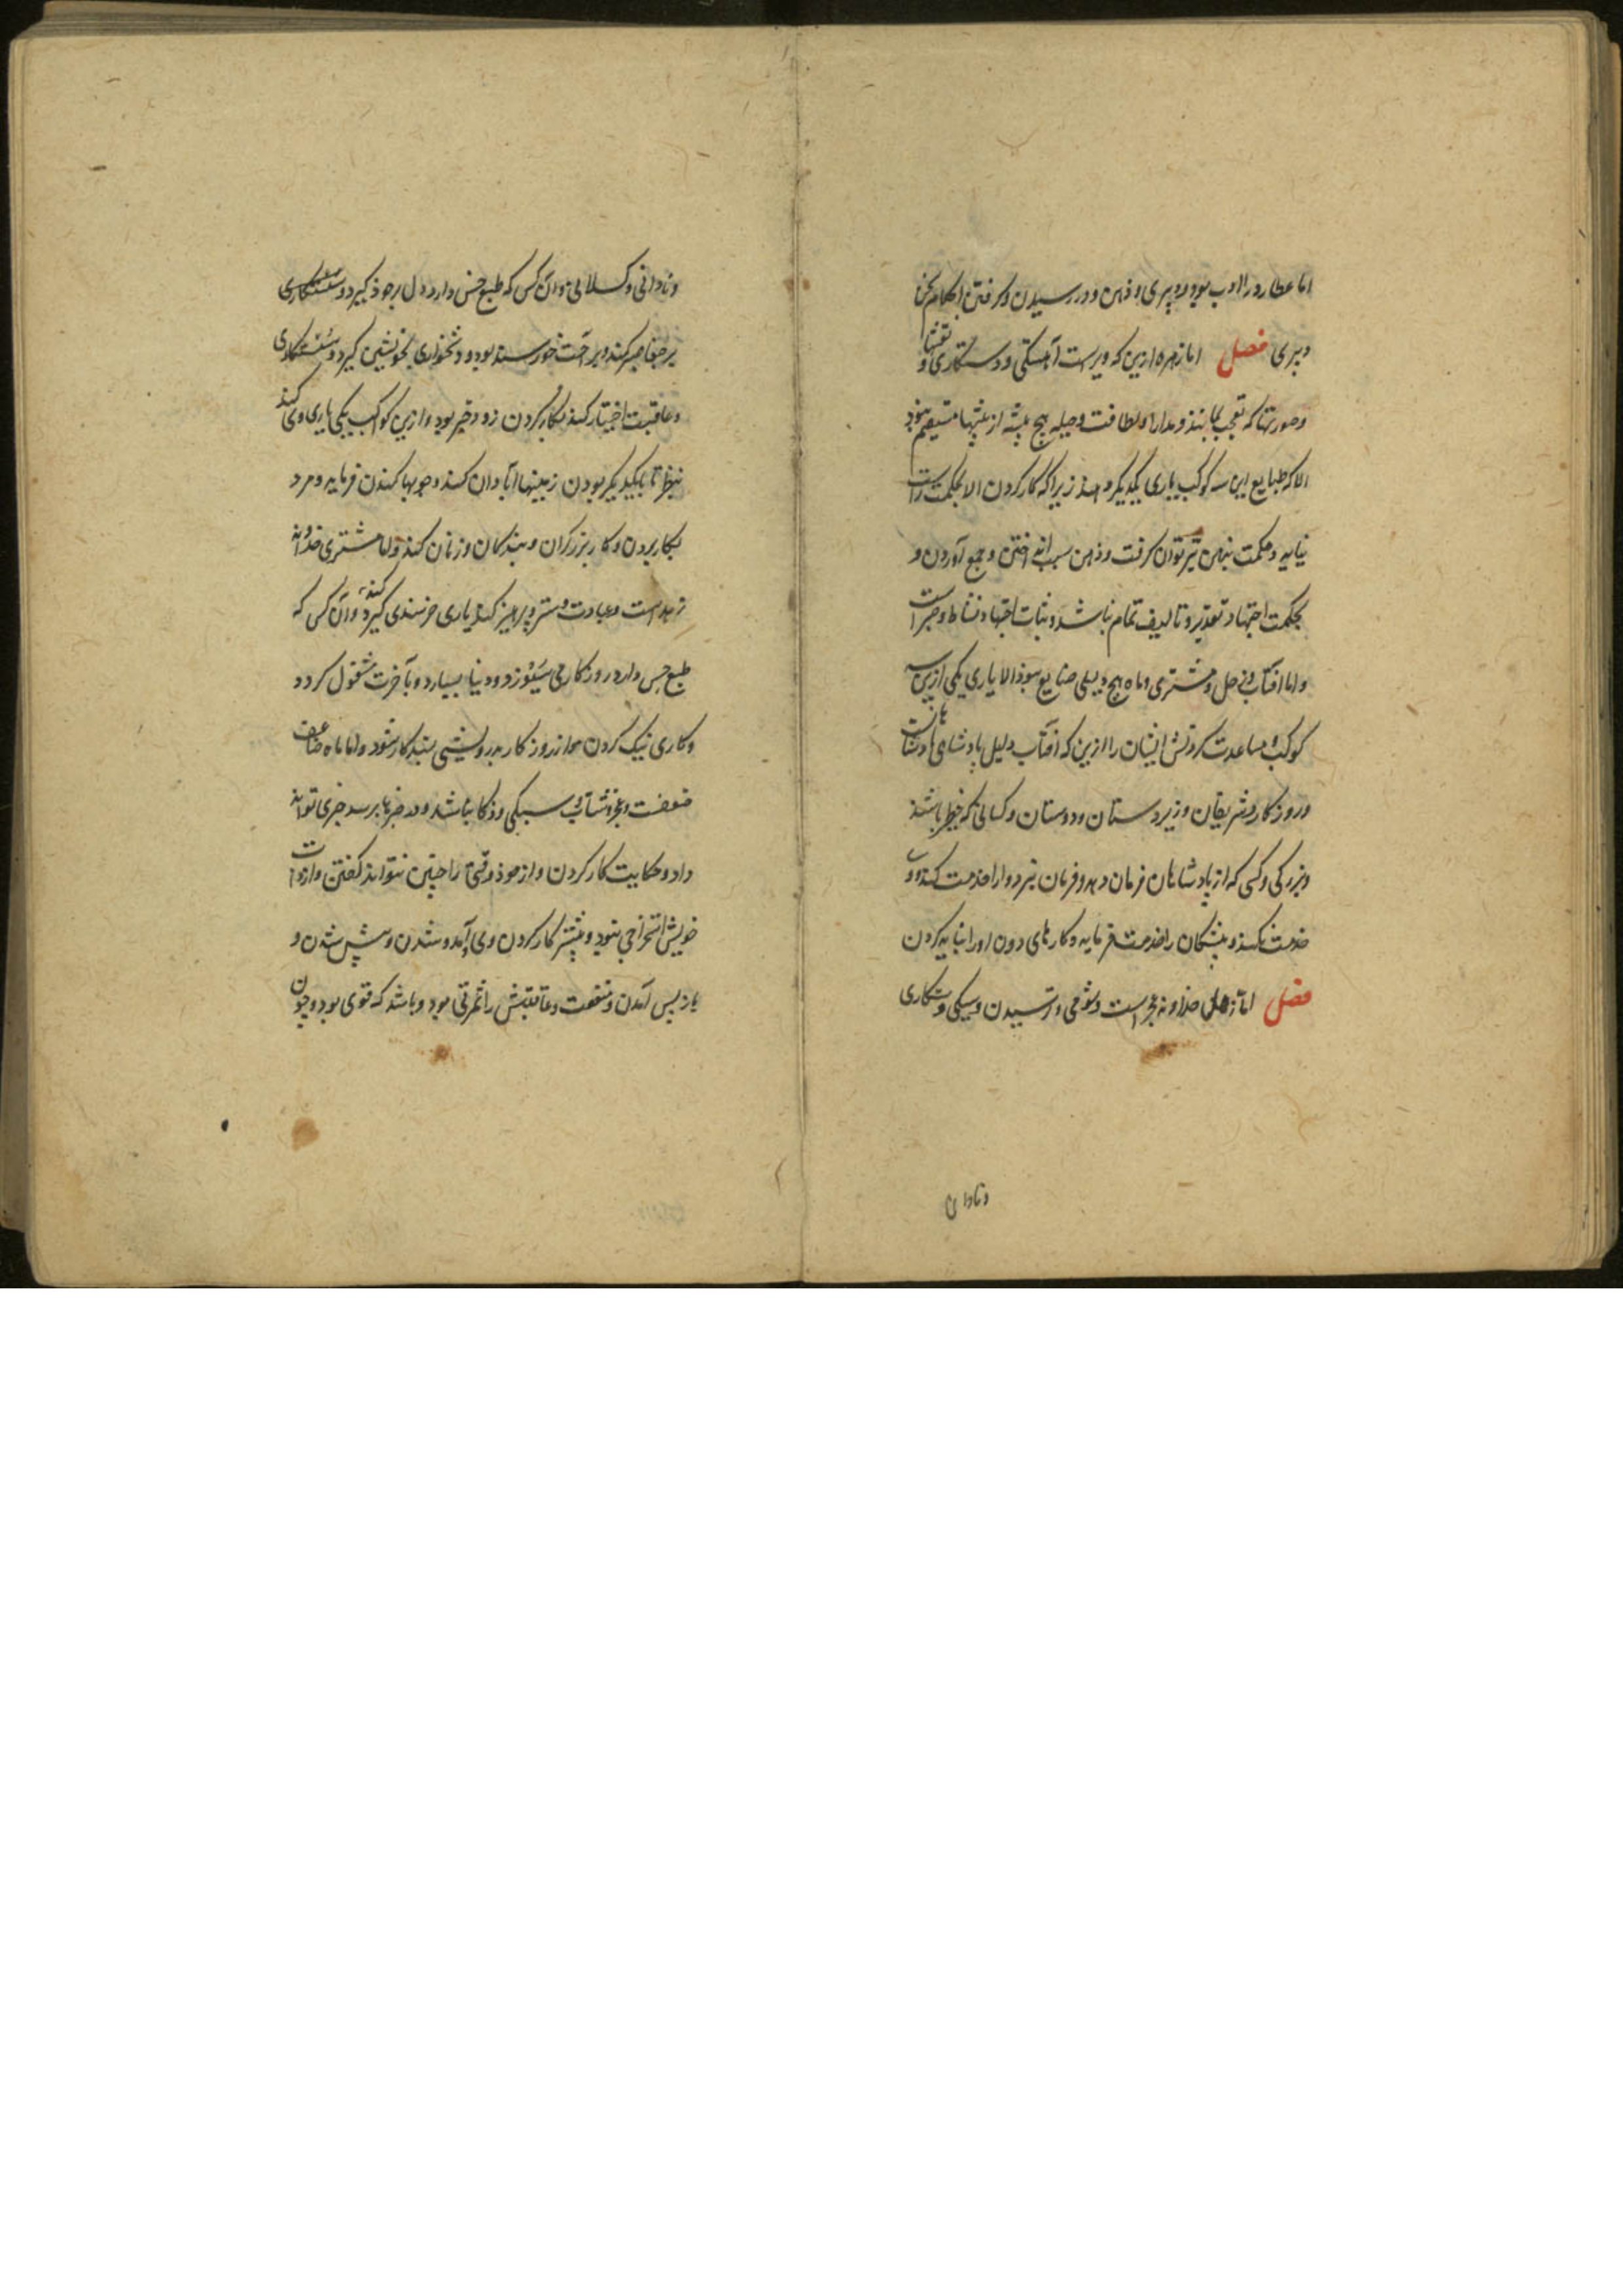 اما عطارد را ادب بود و دبیری و ذهن و در رسیدن و گرفتن احکام سخن
دبیری فصل اما زهره ازین که ویراست آهستگی و دستکاری و نقشها
و صورتها که تعجب نمایند و مدارا و لطافت و حیله هیچ پیشه از پیشها مستقیم نبود
الا که طبایع این سه کوکب یاری یکدیگر دهند زیرا که کار کردن الا بحکمت راست
نیاید و حکمت بذهن تیز توان گرفت و ذهن سبب اندوختن و جمع آوردن و
بحکمت اجتهاد تقدیر و تالیف تمام نباشد و ثبات اجتهاد نشاط و جرات
و اما آفتاب و زحل و مشتری و ماه هیچ دلیلی صنایع نبود الا یاری یکی ازین سه
کوکب و مساعدت کردنش ایشان را ازین که آفتاب دلیل پادشاهی پادشاهانست
و روزگار شریفان و زیردستان و دوستان و کسانی که خطر باشند
و بزرگی و کسی که از پادشاهان فرمان دهد و فرمان نبرد و او را خدمت کنند و او
خدمت نکند و پیشکان را خدمت فرماید و کارهای دون او را نباید کردن
فصل اما زحل خداوند عجز است و شومی و ترسیدن و سبکی و ستکاری
و نادانی
و نادانی و کسلانی و آن کس که طبع حس دارد دل بر خود گیرد و ستمکاری
بر جفا صبر کند و بر احمت خورسند بود و دشخواری بخویشتن گیرد و ستمکاری
و عاقبت اختیار کند بکار کردن زود و خیر بود و ازین کواکب یکی یاری وی کند
بنظر تا یکدیگر بودن زمینها آبادان کند و جویها کندن فرماید و مرد
بکار بردن و کار برزگران و بندگان و زنان کند و اما مشتری خداوند
زهد است و عبادت و ستر و پرهیز کند یاری خرسندی گیرد کند و آن کس که
طبع حس دارد روزگار می سپوزد و دنیا بسپارد و بآخرت مشغول گردد
و کاری نیک کردن هوا از روزگار بدرویشی بتبدکار شود و اما ماه صاحب
ضعفست و عجز و شتاب و سبکی و ذکا باشد و در خبرها برسد خبری تواند
داد و حکایت کار کردن و از خود وقتی را چیزی نتواند گفتن و از ذات
خویش استخراجی نبود و بیشتر کار کردن وی آمد و شدن و پیش شدن و
باز پس آمدن و منفعت و عاقبتش را ثمرتی بود و باشد که قوی بود و چون